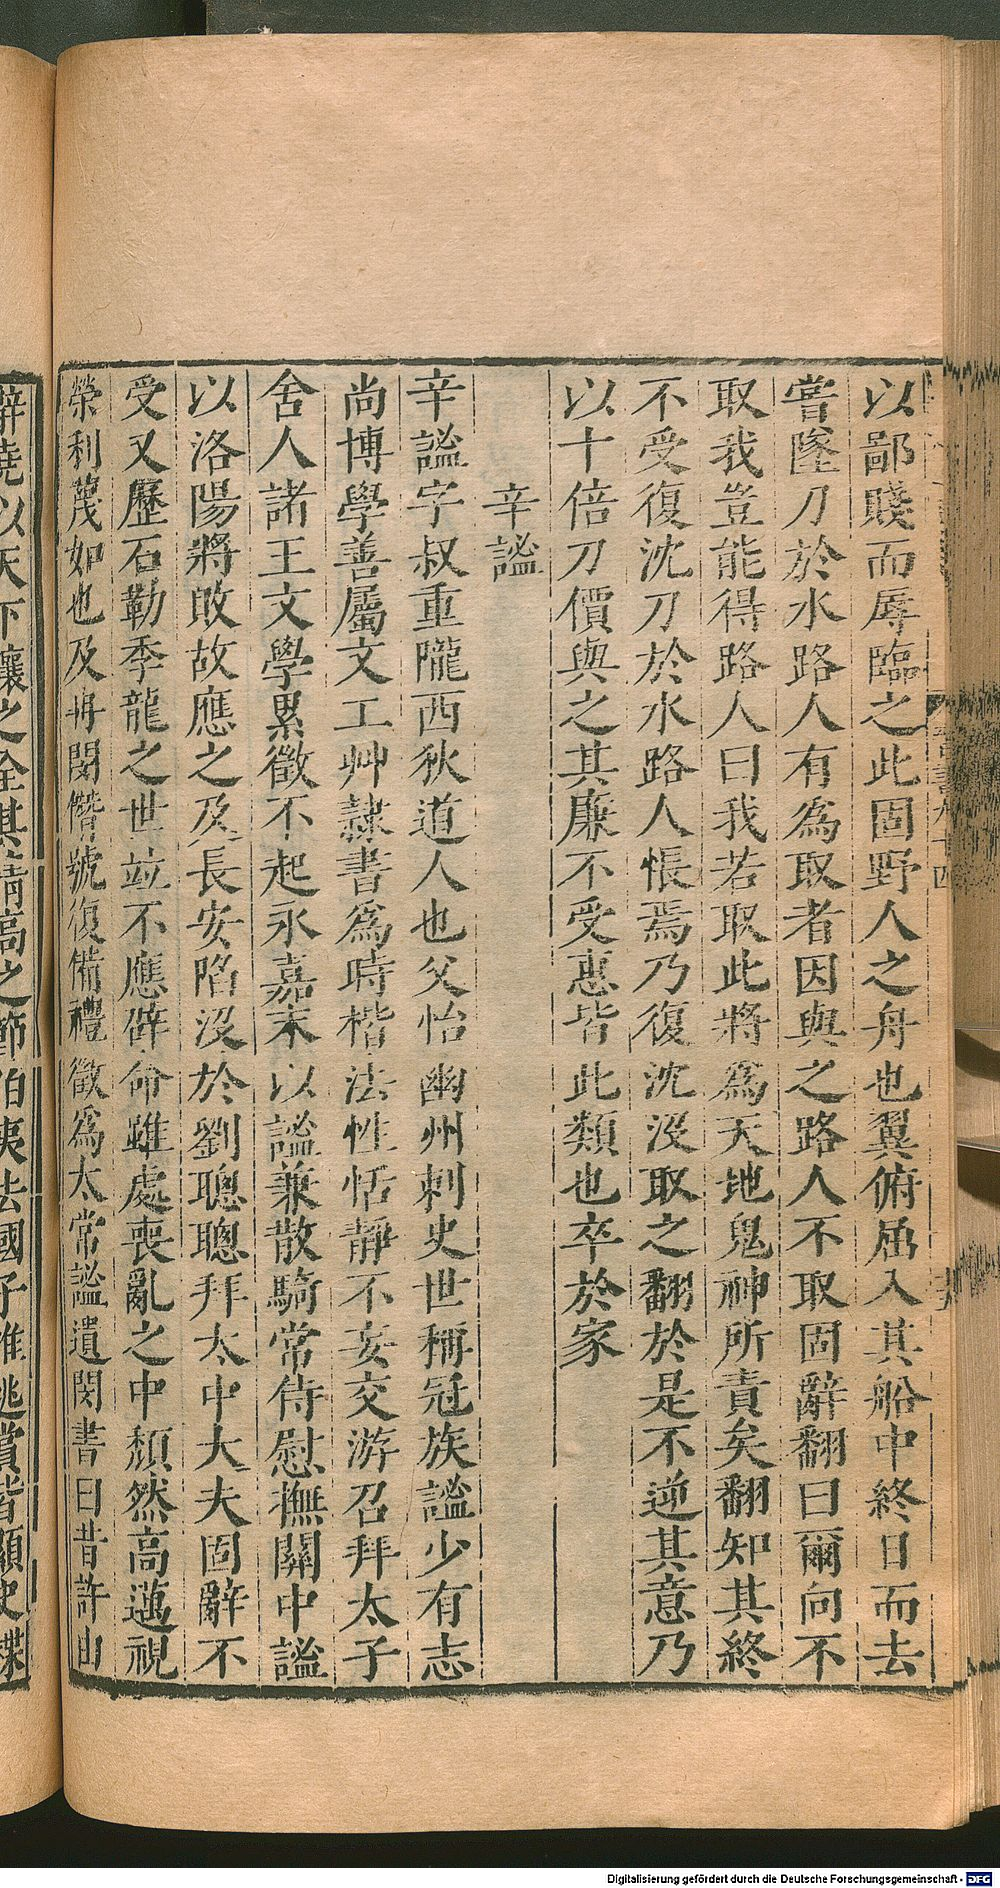 以鄙賤而辱臨之此固野人之舟也翼俯屈入其船中終日而去
嘗墜刀於水路人有為取者因與之路人不取固辭翻曰爾向不
取我豈能得路人曰我若取此將爲天地鬼神所責矣翻知其終
不受復沈刀於水路人悵焉乃復沈沒取之翻於是不逆其意乃
以十倍刀價與之其廉不受惠皆此類也卒於家
辛謐
辛謐字叔重隴西狄道人也父怡幽州刺史世稱冠族謐少有志
尚博學善屬文工艸隸書爲時楷法性恬靜不妄交游召拜太子
舍人諸王文學累徵不起永嘉末以謐兼散騎常侍慰撫關中謐
以洛陽將敗故應之及長安陷沒於劉聰聰拜太中大夫固辭不
受又歷石勒季龍之世竝不應辟命雖處喪亂之中頹然高邁視
榮利蔑如也及冉閔僭號復備禮徵爲太常謐遺閔書曰昔許由
辭堯以天下讓之全其清高之節伯夷去國子推逃賞皆顯史牒
Digitalisierung gefördert durch die Deutsche Forschungsgemeinschaft - DFG